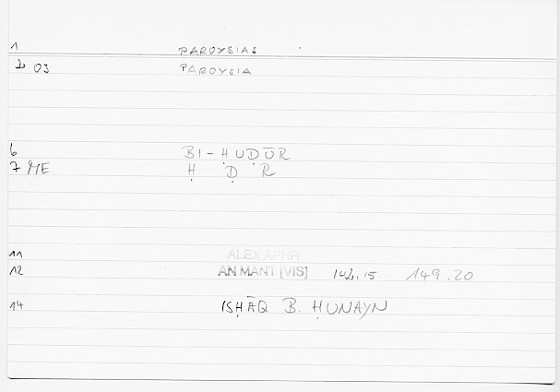 1 PAROYSIAS
2 03 PAROYSIA
6 BI-ḤUḌŪR
7 ME Ḥ Ḍ R
11 ALEX APHR
12 AN MANT [VIS] 149.20
14 ISḤĀQ B. ḤUNAYN